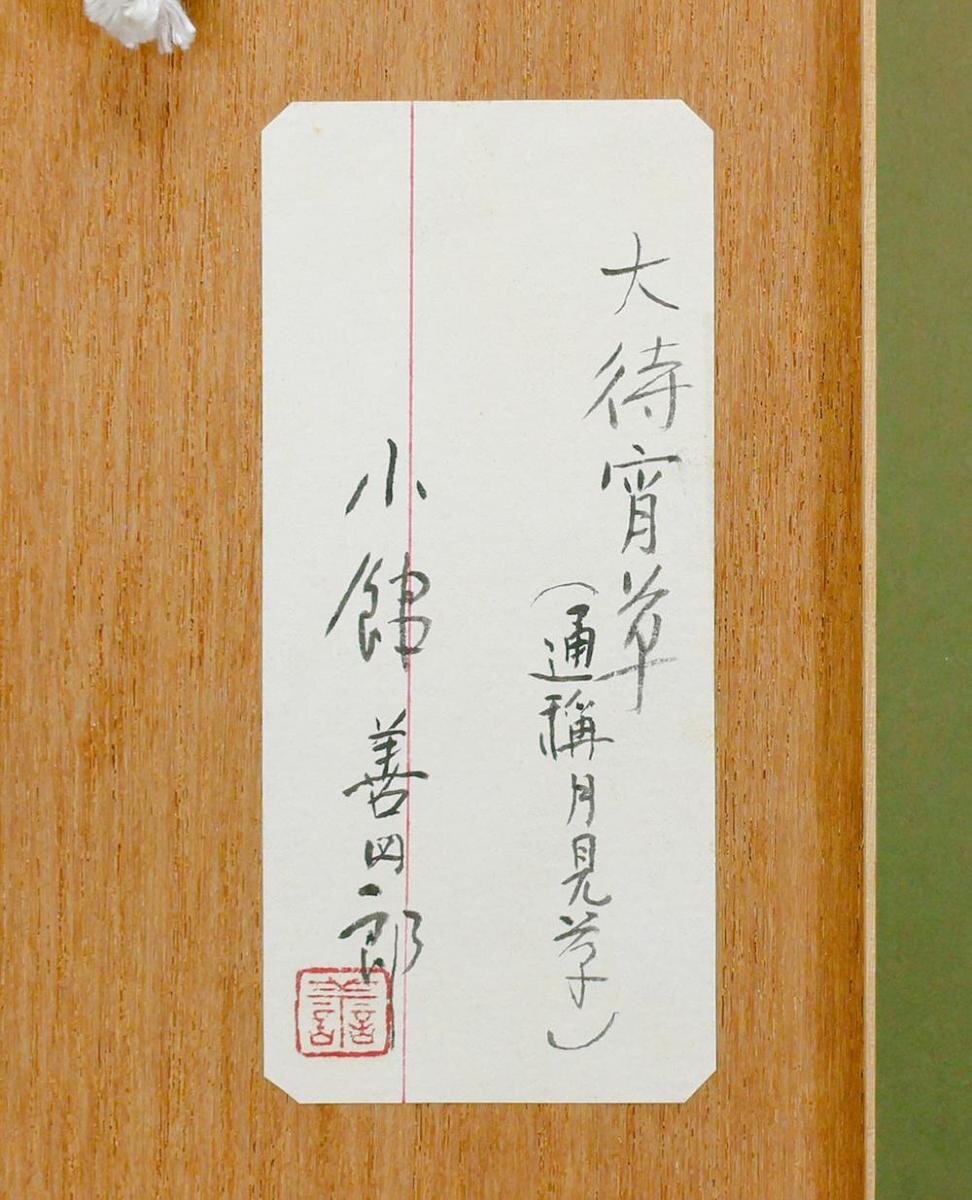 大待宵草
（通稱月見草）
小館善四郎